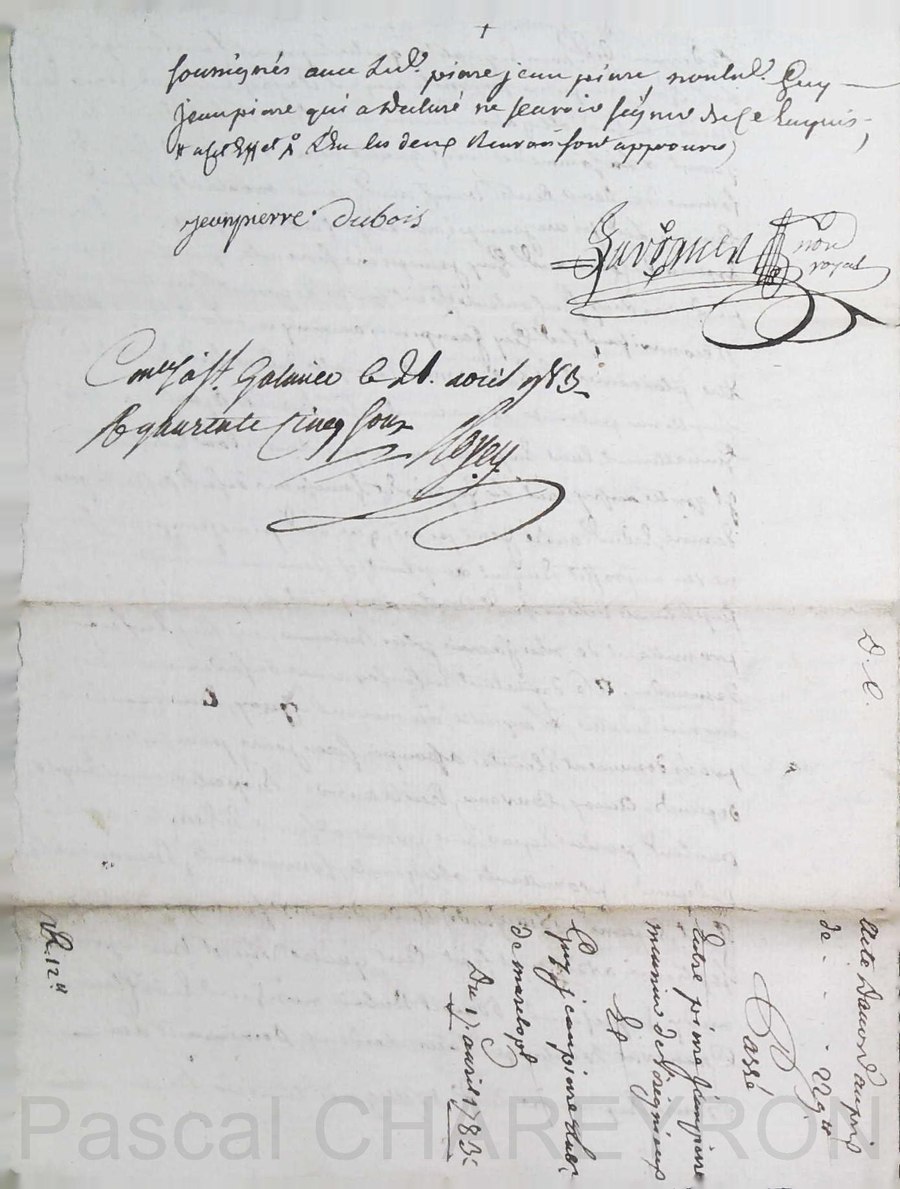 soussignés avec led. pierre jean pierre non led. Guy
jeanpierre qui a declaré ne scavoir signer de ce enquis
les deux Renvois sont approuvés
jeanpierre dubois
not
royal
Con.lé à St. Galmier le 21. avril 1783
R quarante Cinq sous
D. C.
Acte Daccord au prix
de - - 229
Passé
Entre pierre jeanpierre
meunier de
Et
Guy jeanpierre dub.
de marclopt
Du 17 avril 1783.
R. 12
Pascal CHAREYRON